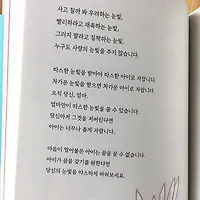 사고 칠까 봐 우려하는 눈빛,
빨리하라고 재촉하는 눈빛,
그러지 말라고 질책하는 눈빛,
누구도 사랑의 눈빛을 주지 않습니다.
따스한 눈빛을 받아야 따스한 아이로 자랍니다.
차가운 눈빛을 받으면 차가운 아이로 자랍니다.
오직 당신, 엄마.
엄마만이 따스한 눈빛을 줄 수 있습니다.
당신마저 그것을 저버린다면
아이는 너무나 춥게 자랍니다.
마음이 얼어붙은 아이는 꿈을 꿀 수 없습니다.
아이가 꿈을 갖기를 원한다면
당신의 눈빛을 따스하게 바꿔보세요.